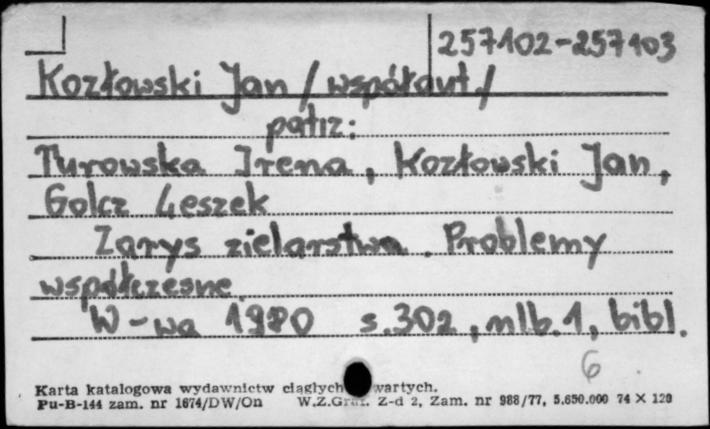 257102-257103
Kozłowski Jan /współaut./
patrz:
Turowska Irena, Kozłowski Jan,
Golcz Leszek
Zarys zielarstwa. Problemy
współczesne.
W-wa 1980 s.302, nlb.1, bibl.
6
Karta katalogowa wydawnictw ciągłych wartych.
Pu-B-144 zam. nr 1674/DW/On W.Z.Graf. Z-d 2, Zam. nr 988/77, 5.650.000 74 X 120